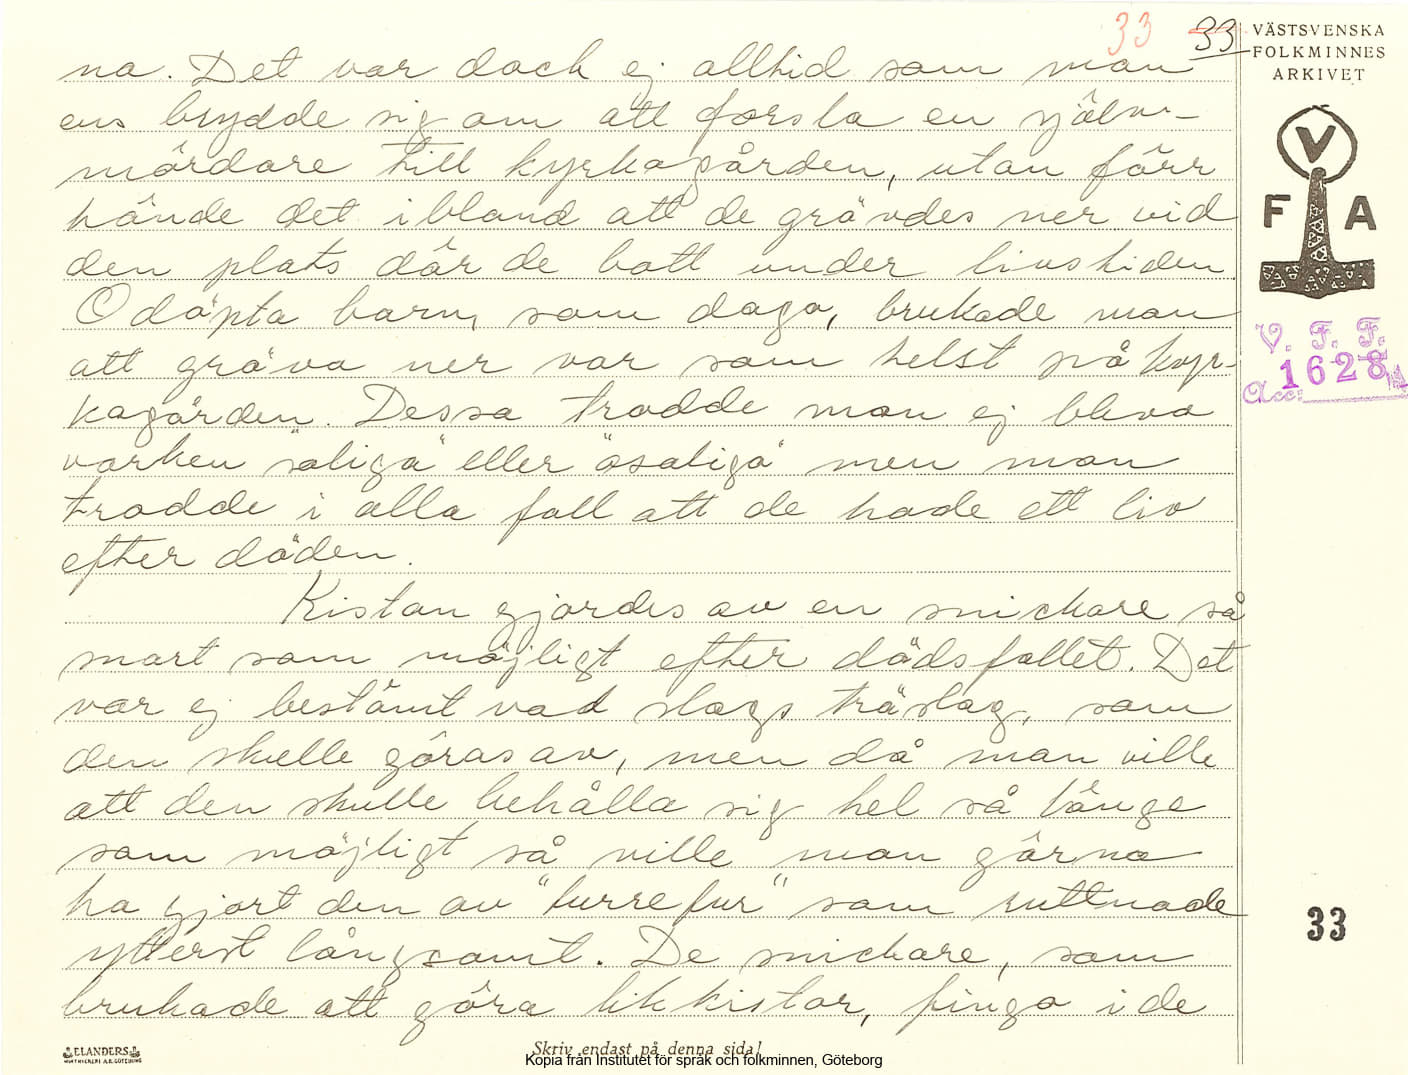 33 33
VÄSTSVENSKA
FOLKMINNES
ARKIVET
V
F A
V. F. F.
1628
Acc:
na. Det var dock ej alltid som man
ens brydde sig om att forsla en själv-
mördare till kyrkogården, utan förr
hände det ibland att de grävdes ner vid
den plats där de bott under livstiden.
Odöpta barn, som dogo, brukade man
att gräva ner var som helst på kyr-
kogården. Dessa trodde man ej bleva
varken "saliga" eller "osaliga" men man
trodde i alla fall att de hade ett liv
efter döden.
Kistan gjordes av en snickare så
snart som möjligt efter dödsfallet. Det
var ej bestämt vad slags träslag, som
den skulle göras av, men då man ville
att den skulle behålla sig hel så länge
som möjligt så ville man gärna
ha gjort den av "turrefur" som ruttnade
ytterst långsamt. De snickare, som
brukade att göra likkistor, fingo i de
33
ELANDERS
Skriv endast på denna sida!
Kopia från Institutet för språk och folkminnen, Göteborg